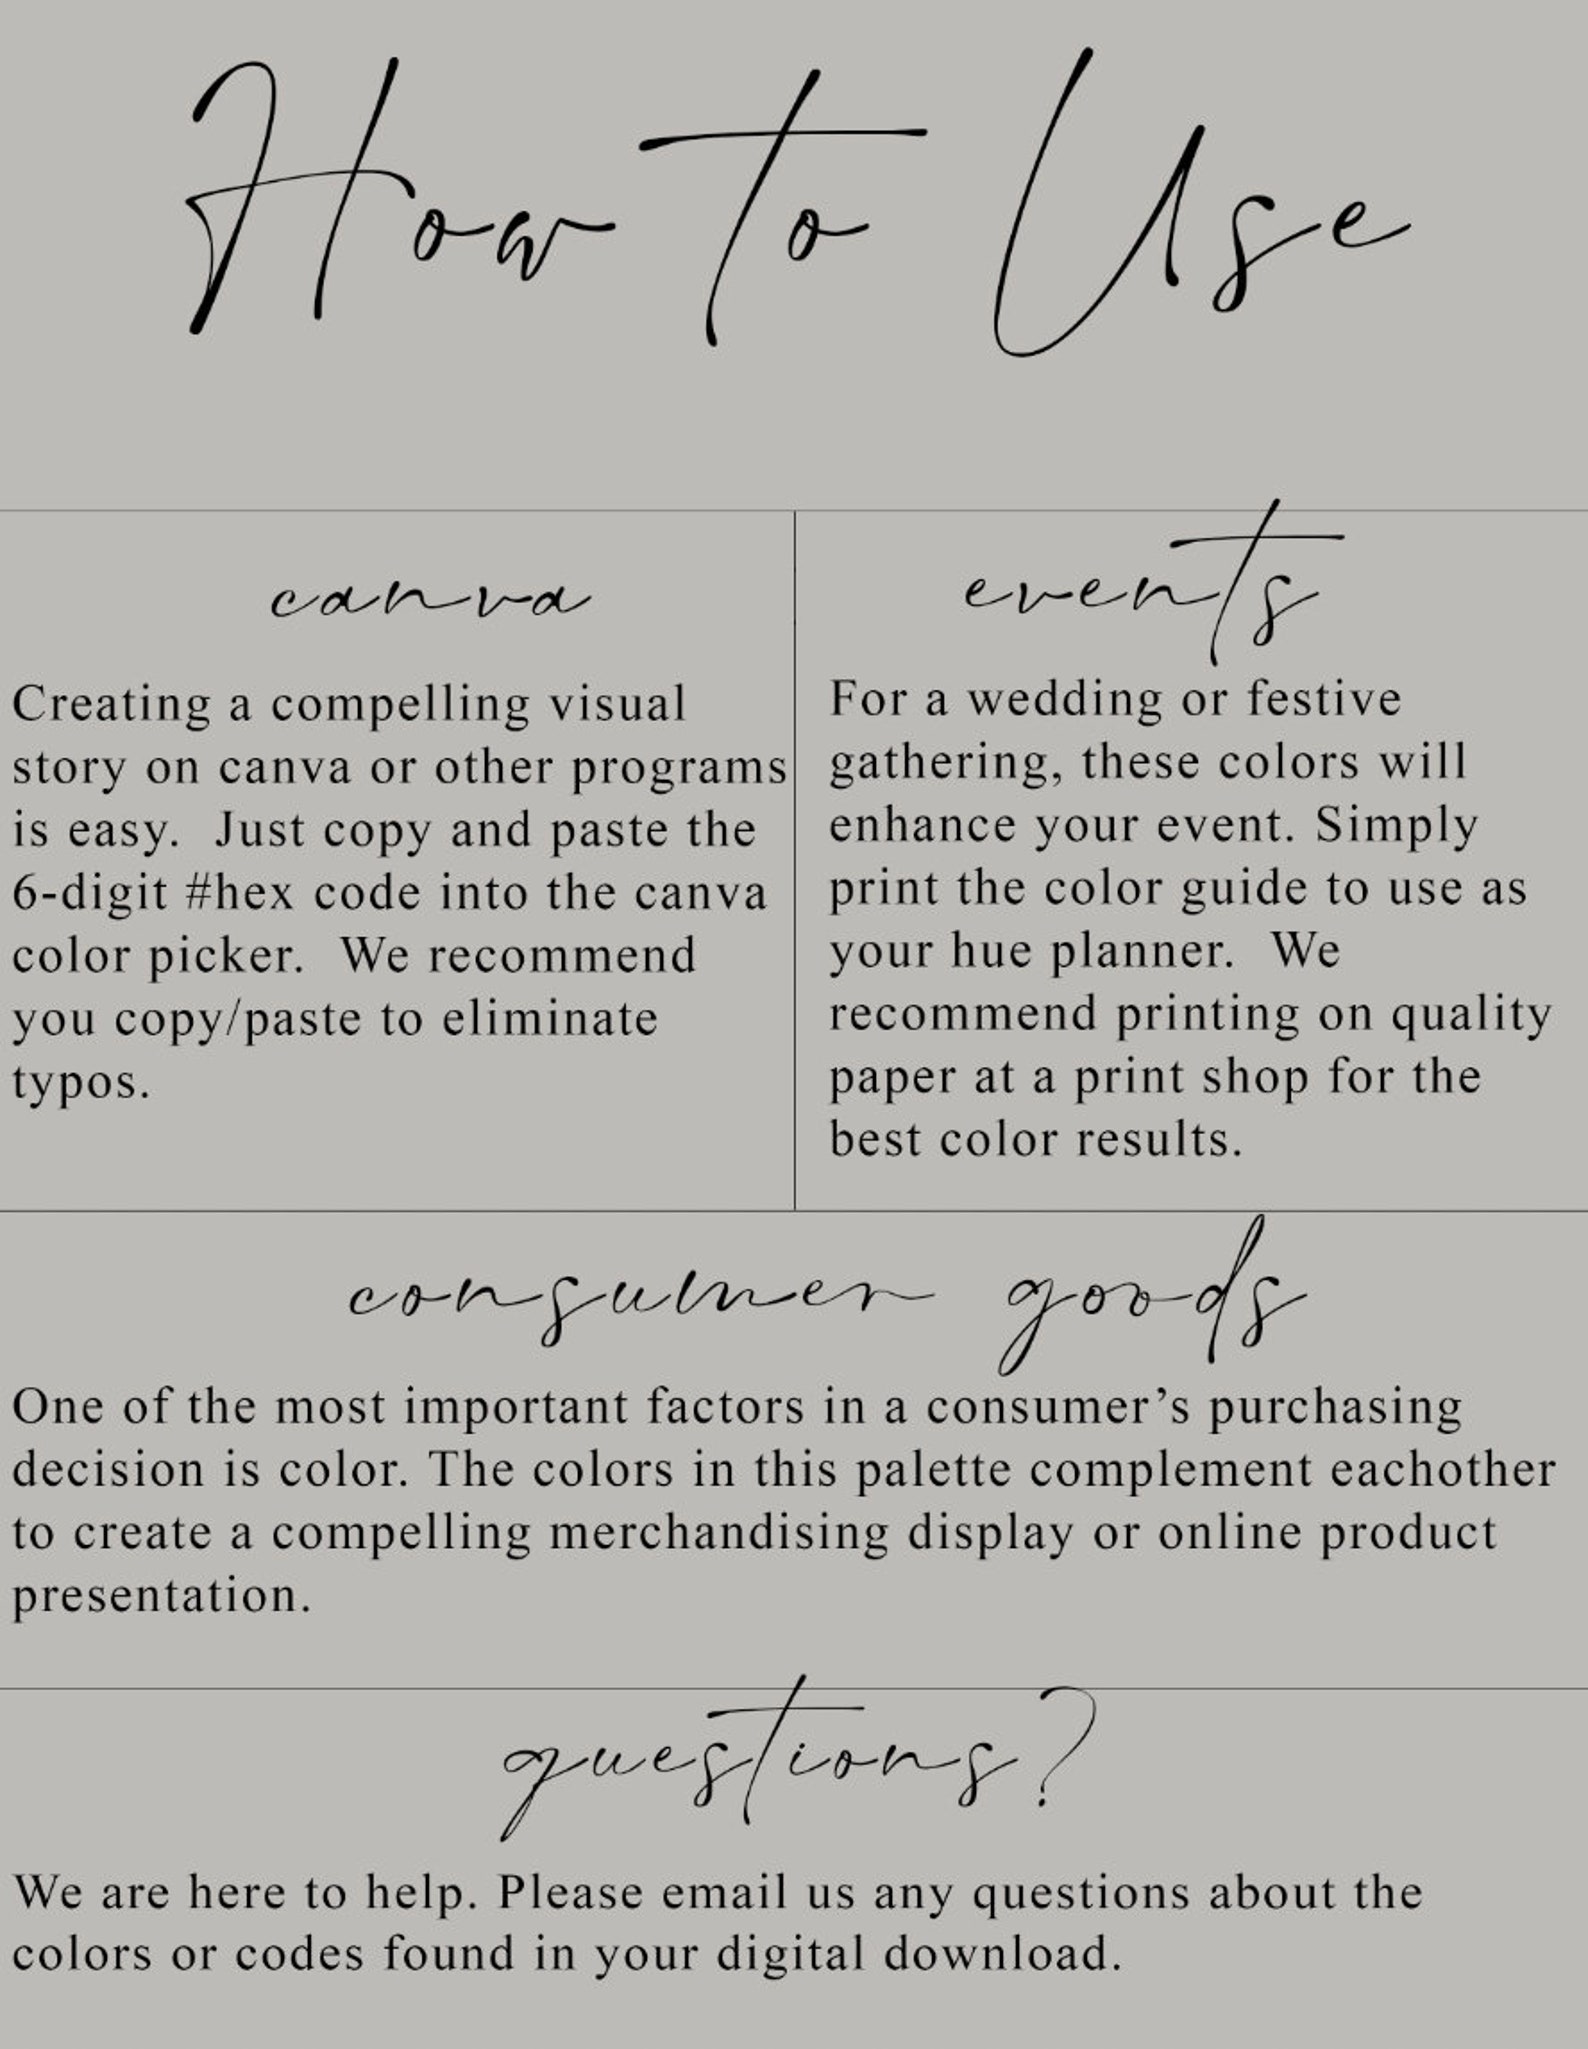 How to Use
canva
Creating a compelling visual
story on canva or other programs
is easy.  Just copy and paste the
6-digit #hex code into the canva
color picker.  We recommend
you copy/paste to eliminate
typos.
events
For a wedding or festive
gathering, these colors will
enhance your event. Simply
print the color guide to use as
your hue planner.  We
recommend printing on quality
paper at a print shop for the
best color results.
consumer goods
One of the most important factors in a consumer’s purchasing
decision is color. The colors in this palette complement eachother
to create a compelling merchandising display or online product
presentation.
questions?
We are here to help. Please email us any questions about the
colors or codes found in your digital download.